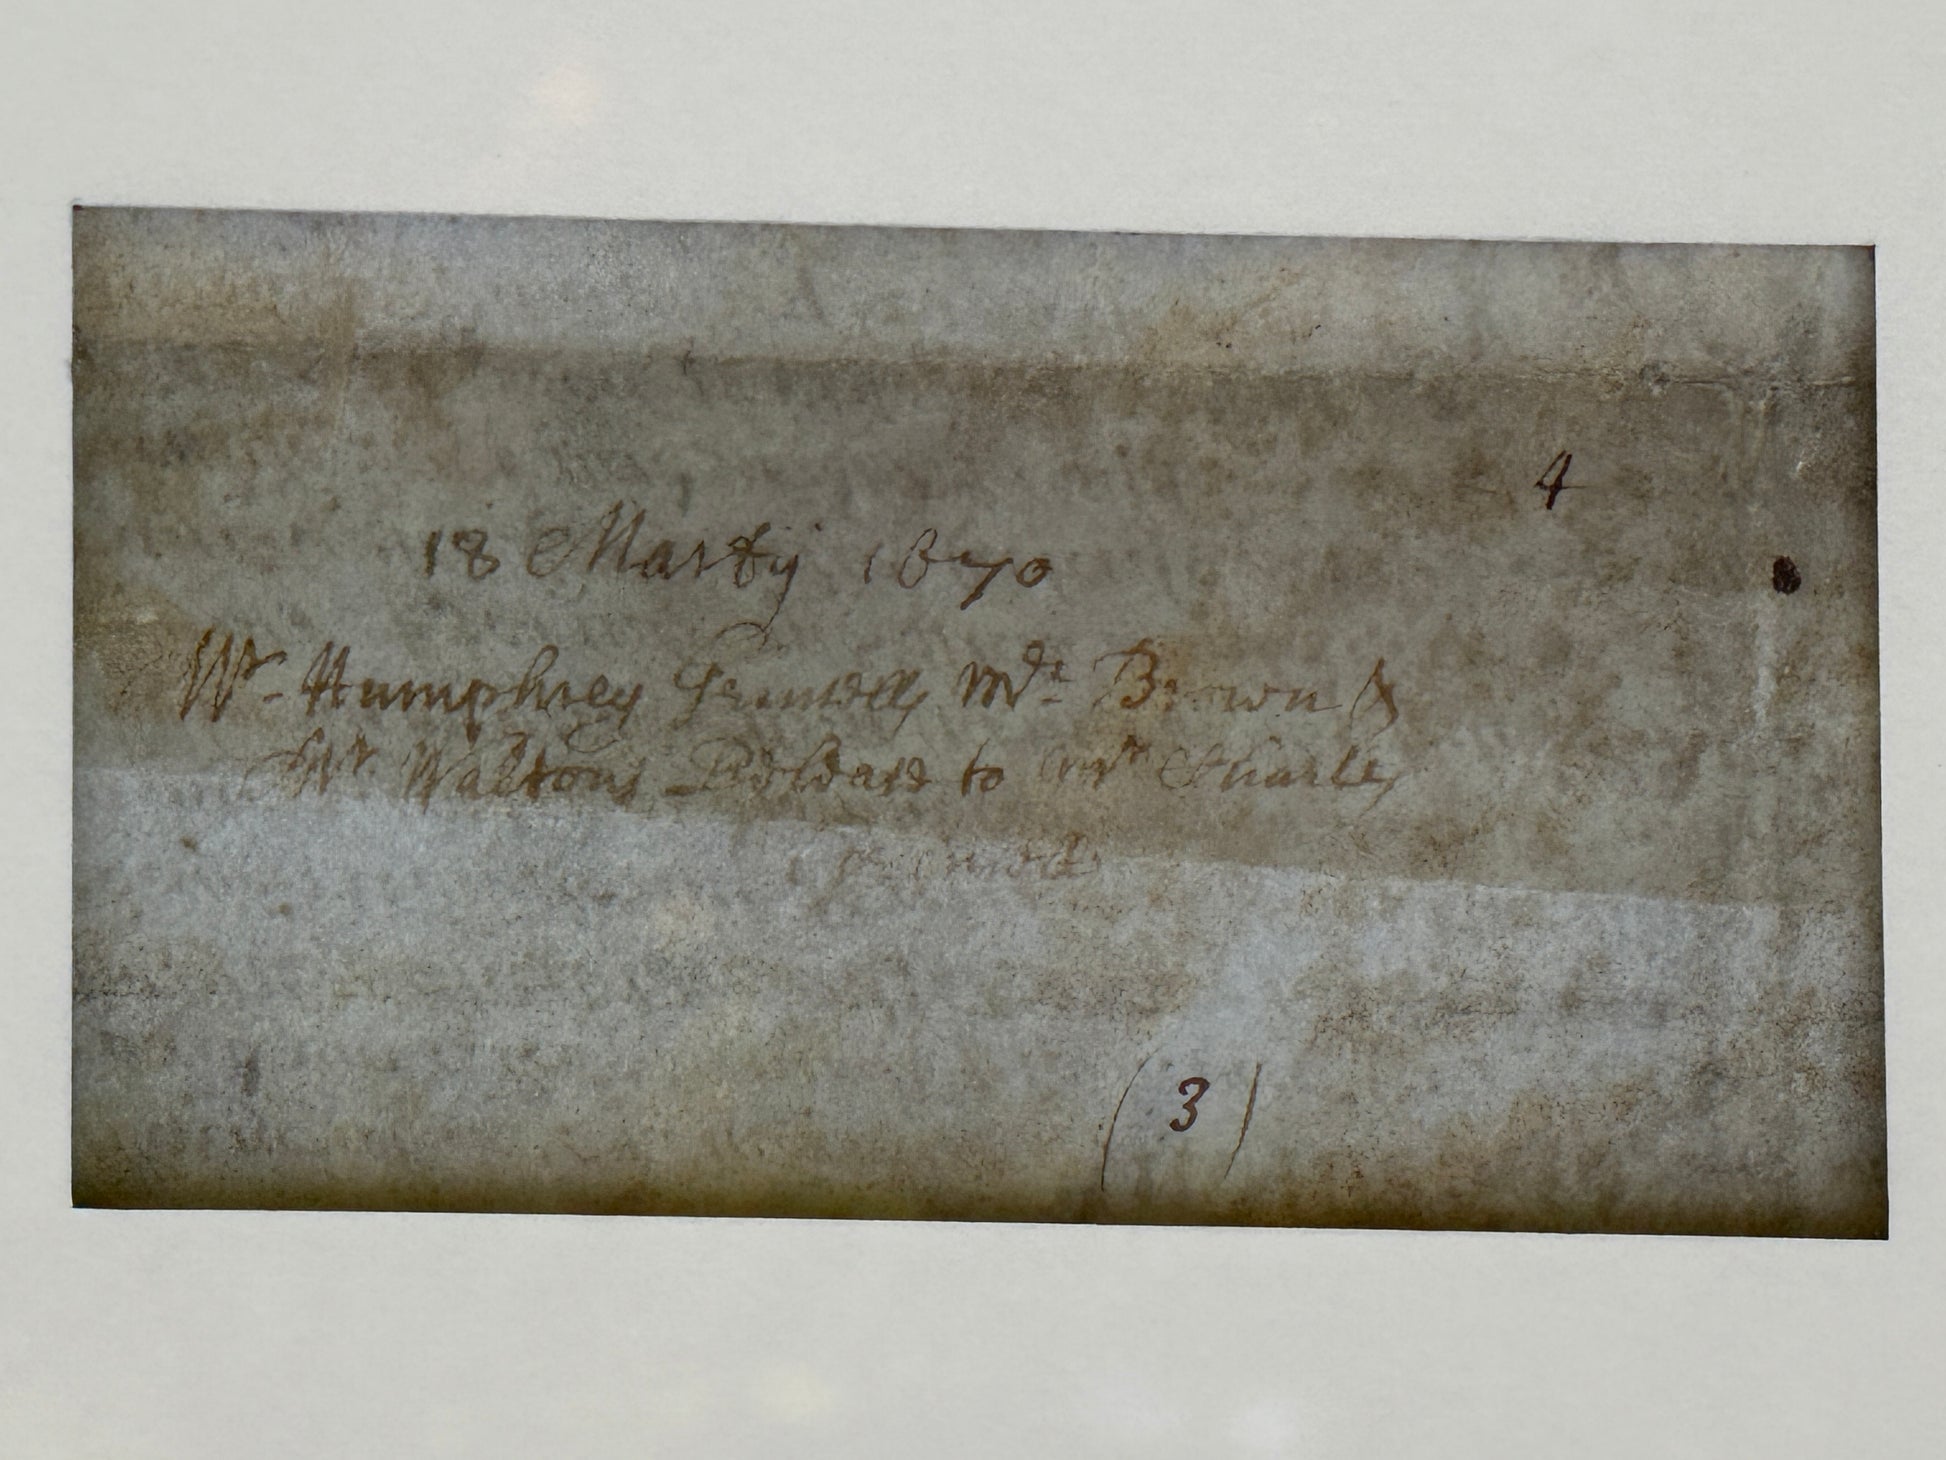 4
18 Martij 1670
Mr. Humphrey Gunnells Mr. Brown &
Mr. Waltons Release to Mr. Charles
(3)